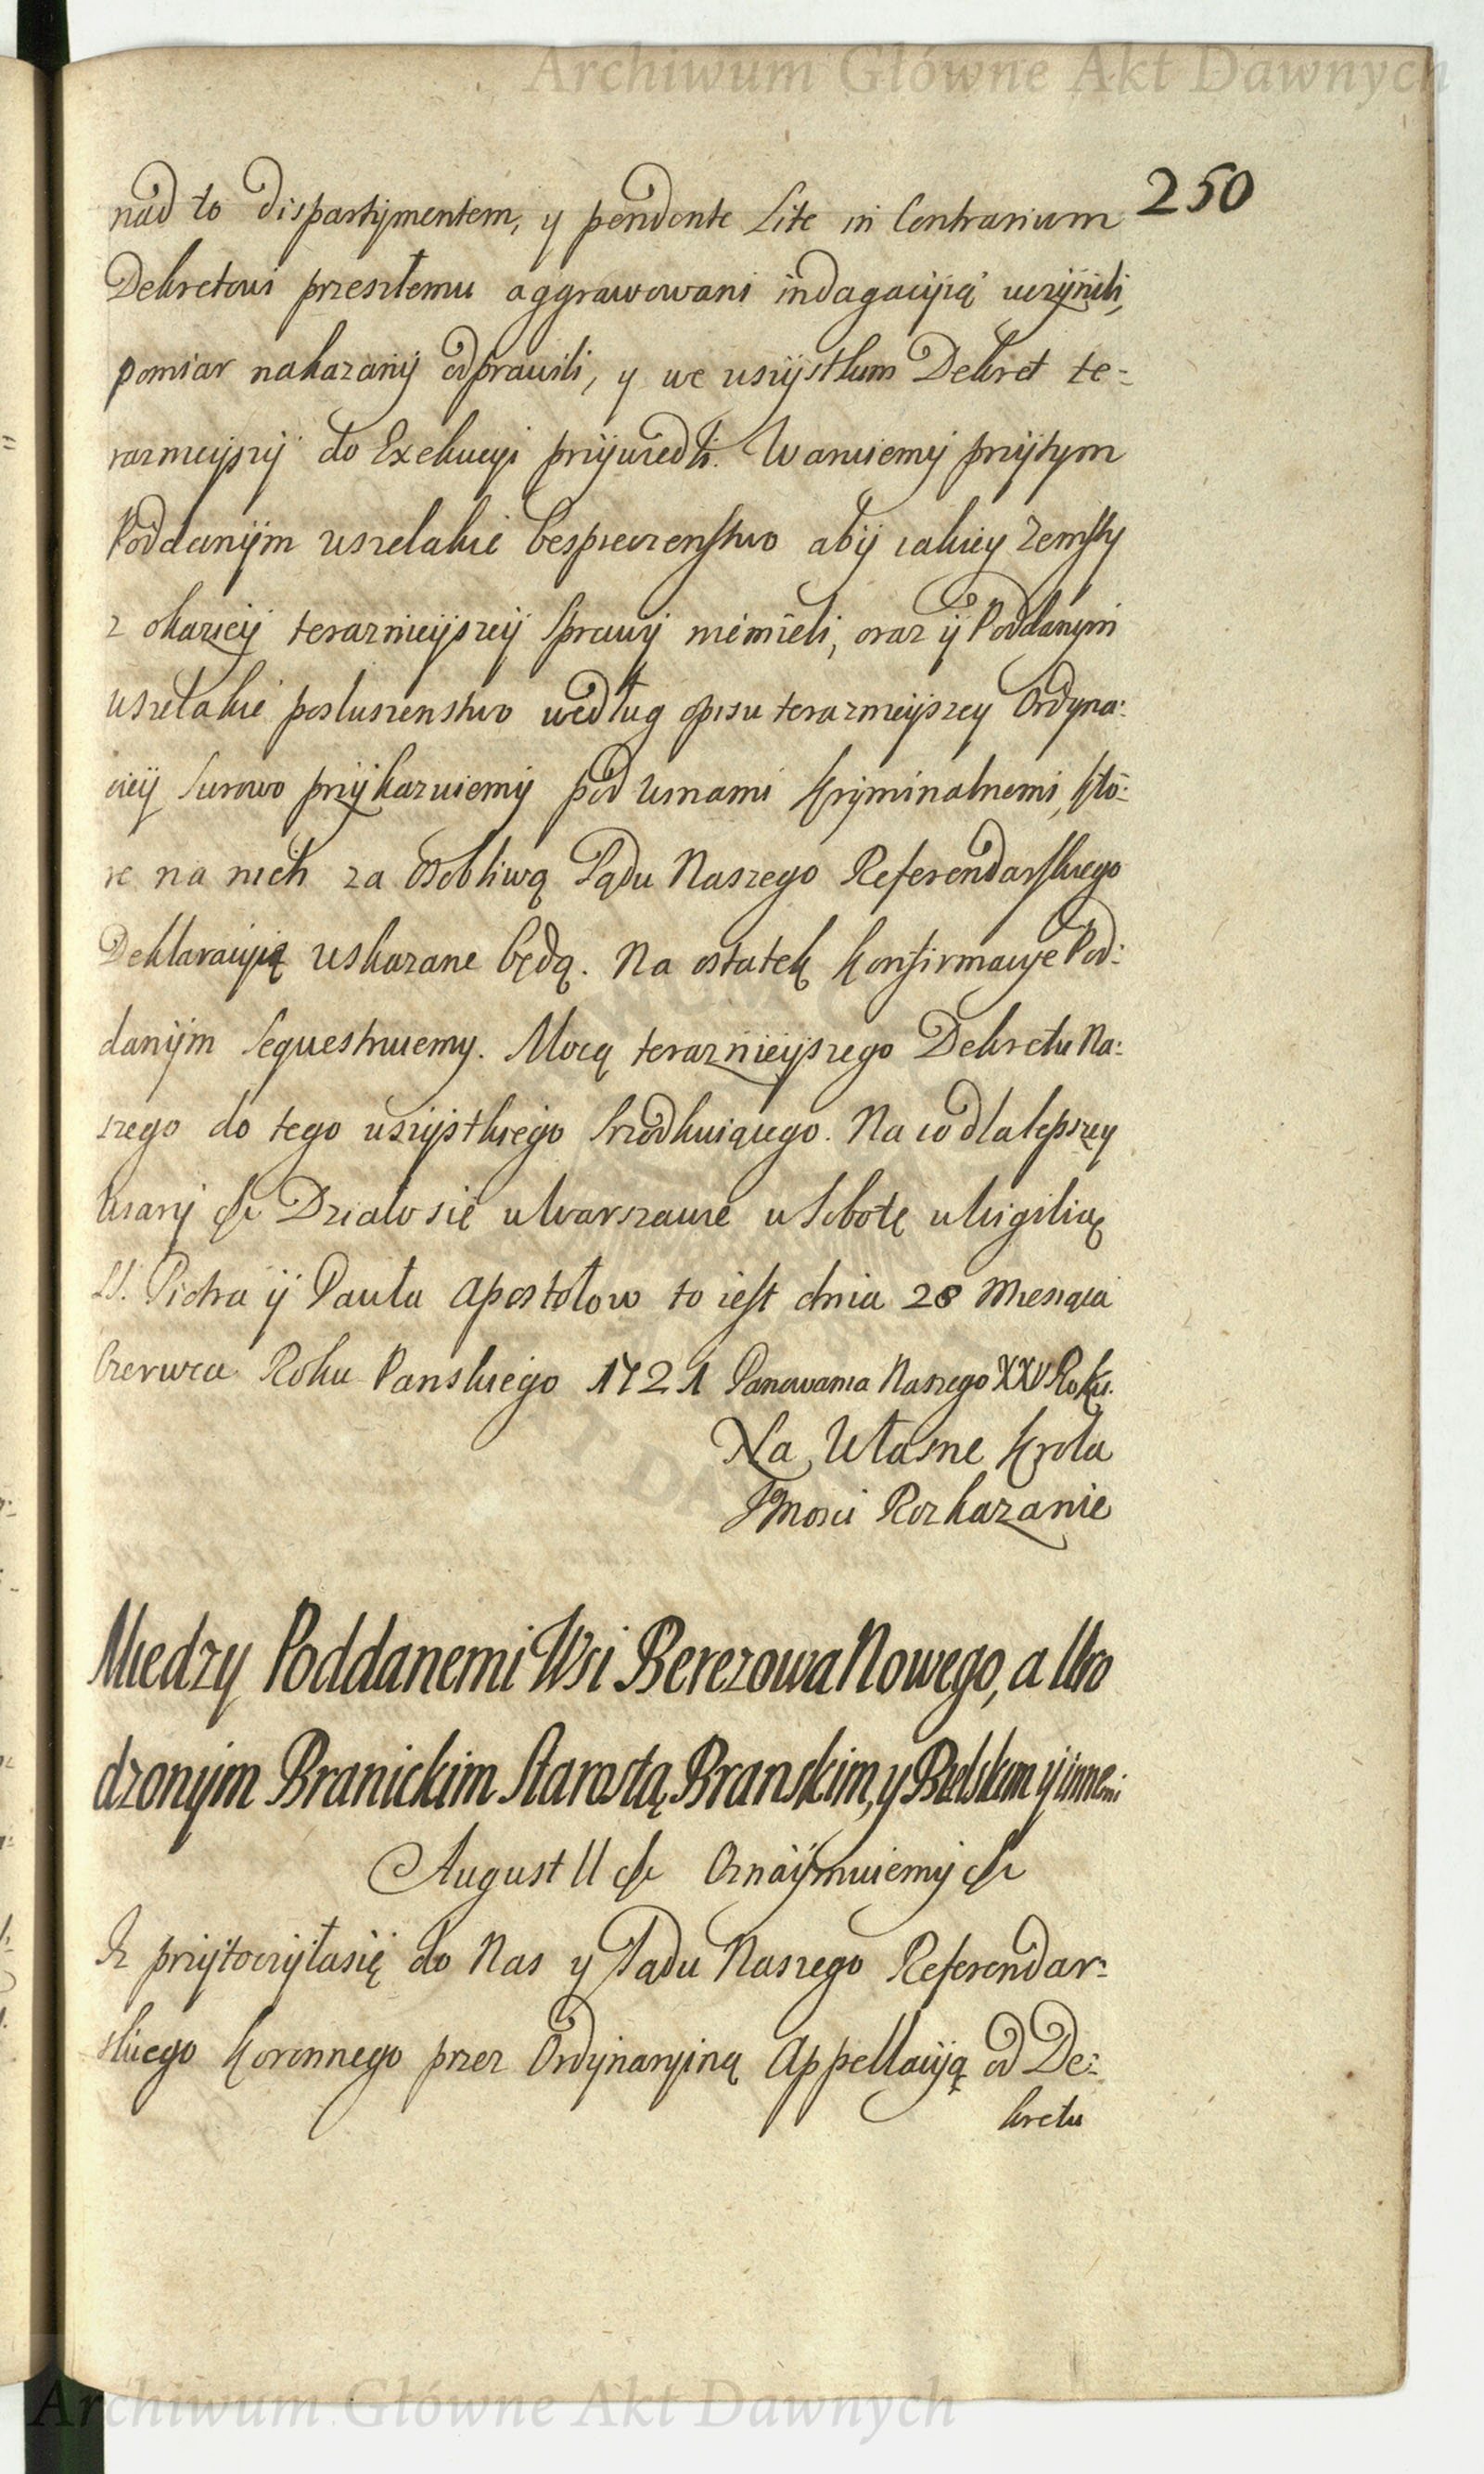 Archiwum Główne Akt Dawnych
250
nad to dispartymentem, y pendente Lite in Contrarium
Dekretowi przeszłemu aggrawowani indagacyią uczynili,
pomiar nakazany odprawili, y we wszystkim Dekret te=
raznieyszy do Exekucyi przywiedli. Waruiemy przytym
Poddanym wszelakie bespieczenstwo aby iakiey zemsty
z okazicy teraznieyszey Sprawy niemieli, oraz y Poddanym
wszelakie posluszenstwo według opisu teraznieyszey Ordyna=
cicy surowo przykazuiemy pod winami kryminalnemi, kto=
re na nich za osobliwą Sądu Naszego Referendarskiego
Deklaracyią wskazane będą. Na ostatek konfirmacye Pod=
danym sequestruiemy. Mocą teraznieyszego Dekretu Na=
szego do tego wszystkiego srzodkuiącego. Na co dla lepszey
wiary &c Działo się w Warszawie w Sobotę w Wigilią
SS. Piotra y Pawła Apostołow to iest dnia 28 Miesiąca
Czerwca Roku Panskiego 1721 Panowania Naszego XXV Roku.
Na Własne Krola
Jmosci Rozkazanie
Miedzy Poddanemi Wsi Berezowa Nowego, a Uro
dzonym Branickim Starostą Branskim, y Bielskim y innemi
August II &c Oznaymuiemy &c
Iz przytoczyłasię do Nas y Sądu Naszego Referendar=
skiego Koronnego przez Ordynaryiną Appellacyją od De=
kretu
Archiwum Główne Akt Dawnych